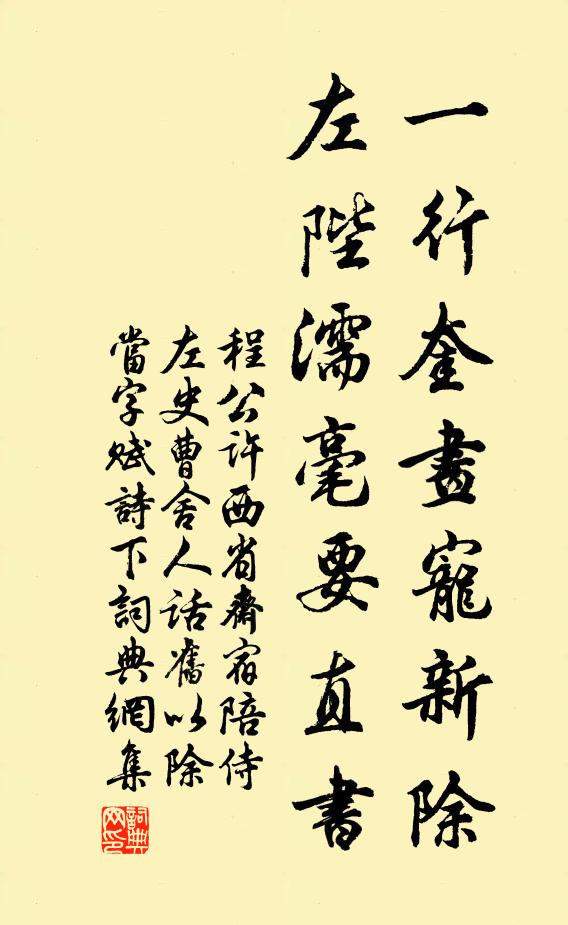 一行奎畫寵新除
左陛濡毫要直書
程公許西省齋宿陪侍
左史曹舍人話舊以除
當字賦詩下詞典網集
詞典网印